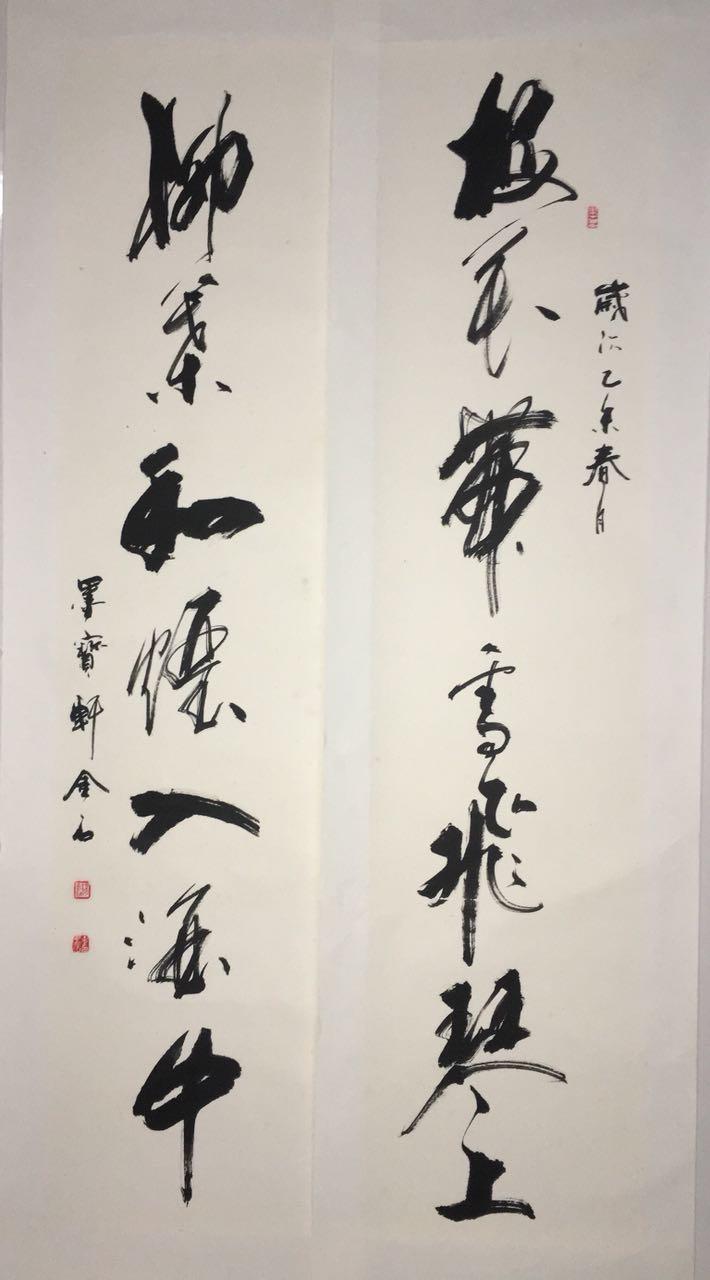 歲次乙未春月
梅花帶雪飛琴上
柳葉和煙入酒中
墨寶軒金石